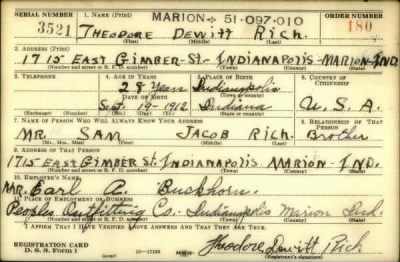 SERIAL NUMBER 1. NAME (Print) MARION + 51-097-010 ORDER NUMBER
3521 THEODORE DEWITT RICH. 180
(First) (Middle) (Last)
2. ADDRESS (Print)
1715 EAST GIMBER St. INDIANAPOLIS-MARION-IND
(Number and street or R. F. D. number) (Town) (County) (State)
3. TELEPHONE 4. AGE IN YEARS 5. PLACE OF BIRTH 6. COUNTRY OF CITIZENSHIP
28 Years Indianapolis
DATE OF BIRTH (Town or county)
Sept. 19-1912 Indiana U.S.A.
(Exchange) (Number) (Mo.) (Day) (Yr.) (State or country)
7. NAME OF PERSON WHO WILL ALWAYS KNOW YOUR ADDRESS 8. RELATIONSHIP OF THAT PERSON
MR. SAM JACOB RICH. Brother
(Mr., Mrs., Miss) (First) (Middle) (Last)
9. ADDRESS OF THAT PERSON
1715 EAST GIMBER St. INDIANAPOLIS MARION-IND.
(Number and street or R. F. D. number) (Town) (County) (State)
10. EMPLOYER'S NAME
Mr. Earl A. Buckhorn.
11. PLACE OF EMPLOYMENT OR BUSINESS
Peoples Outfitting Co. - Indianapolis Marion Ind.
(Number and street or R. F. D. number) (Town) (County) (State)
I AFFIRM THAT I HAVE VERIFIED ABOVE ANSWERS AND THAT THEY ARE TRUE.
REGISTRATION CARD
D. S. S. Form 1 Theodore Dewitt Rich
(Registrant's signature)